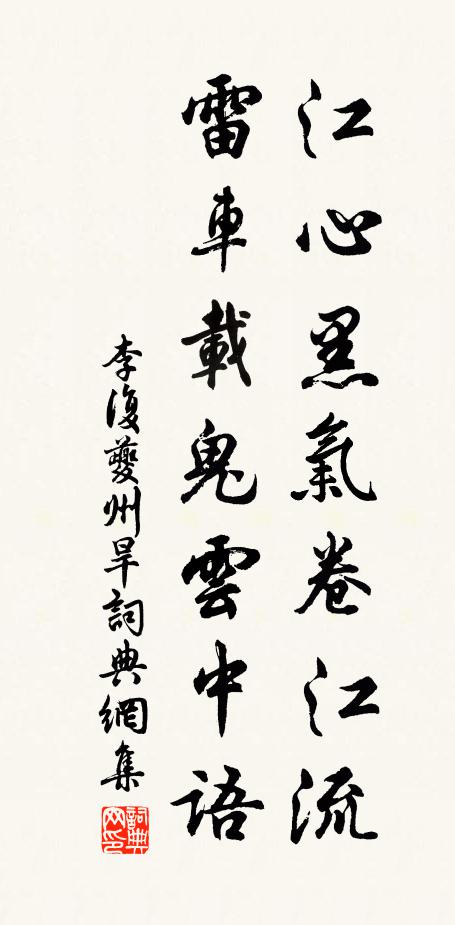 江心黑氣卷江流
雷車載鬼雲中語
李復夔州旱詞典網集
詞典網印